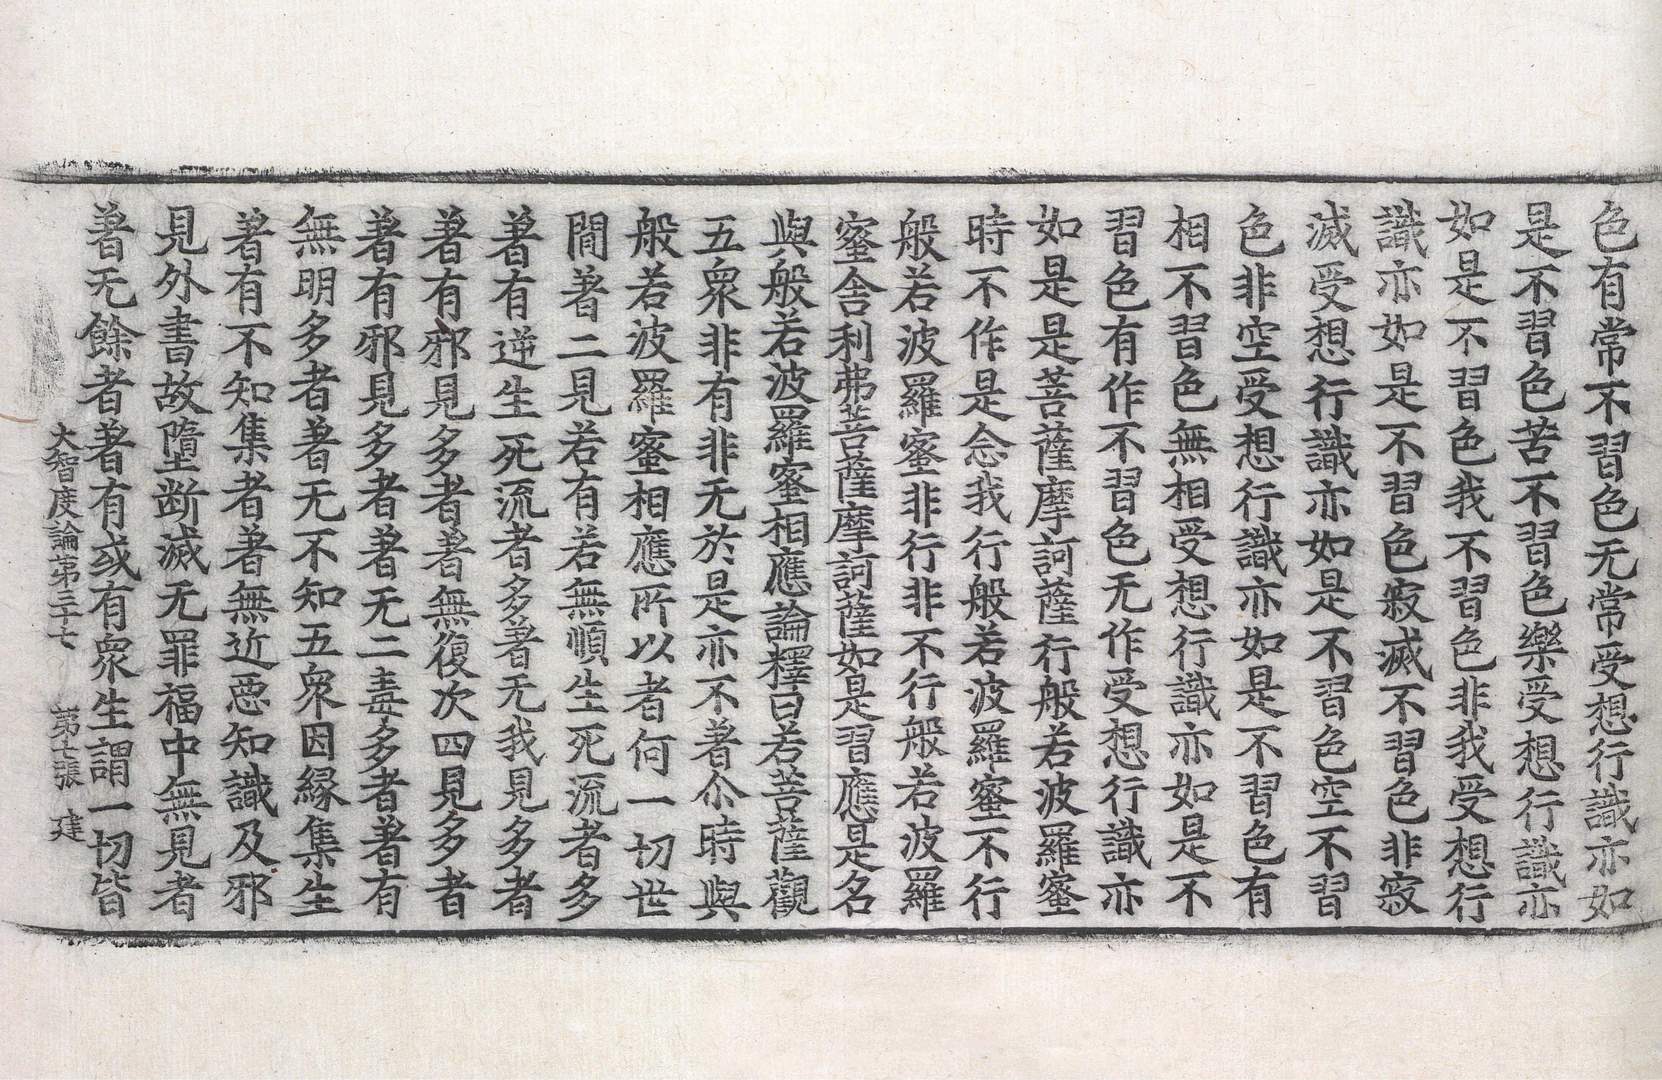 色有常不習色无常受想行識亦如
是不習色苦不習色樂受想行識亦
如是不習色我不習色非我受想行
識亦如是不習色寂滅不習色非寂
滅受想行識亦如是不習色空不習
色非空受想行識亦如是不習色有
相不習色無相受想行識亦如是不
習色有作不習色无作受想行識亦
如是是菩薩摩訶薩行般若波羅蜜
時不作是念我行般若波羅蜜不行
般若波羅蜜非行非不行般若波羅
蜜舍利弗菩薩摩訶薩如是習應是名
與般若波羅蜜相應論釋曰若菩薩觀
五衆非有非无於是亦不著尒時與
般若波羅蜜相應所以者何一切世
間著二見若有若無順生死流者多
著有逆生死流者多著无我見多者
著有邪見多者著無復次四見多者
著有邪見多者著无二毒多者著有
無明多者著无不知五衆因縁集生
著有不知集者著無近惡知識及邪
見外書故墮断滅无罪福中無見者
著无餘者著有或有衆生謂一切皆
大智度論第三十七 第七張 建